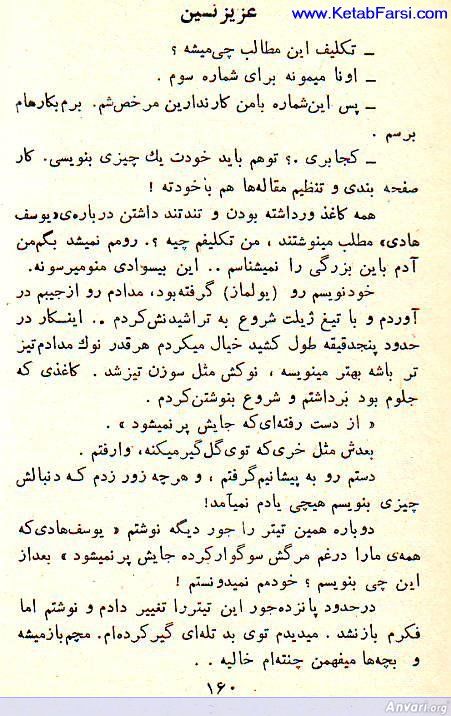 www.KetabFarsi.com
عزیز نسین
ــ تکلیف این مطالب چی‌میشه ؟
ــ اونا میمونه برای شماره سوم .
ــ پس این‌شماره بامن کارندارین مرخص‌شم. برم‌بکارهام
برسم .
ــ کجابری .؟ توهم باید خودت یك چیزی بنویسی. کار
صفحه بندی و تنظیم مقاله‌ها هم باخودته !
همه کاغذ ورداشته بودن و تندتند داشتن درباره‌ی«یوسف
هادی» مطلب مینوشتند ، من تکلیفم چیه ؟. رومم نمیشد بگم‌من
آدم باین بزرگی را نمیشناسم .. این بیسوادی منومیرسونه.
خودنویسم رو (یولماز) گرفته‌بود، مدادم رو ازجیبم در
آوردم و با تیغ ژیلت شروع به تراشیدنش‌کردم .. اینکار در
حدود پنجدقیقه طول کشید خیال میکردم هرقدر نوك مدادم‌تیز
تر باشه بهتر مینویسه ، نوکش مثل سوزن تیزشد . کاغذی که
جلوم بود برداشتم و شروع بنوشتن‌کردم .
« از دست رفته‌ای‌که جایش پر‌نمیشود » .
بعدش مثل خری‌که توی‌گل‌گیرمیکنه، وارفتم .
دستم رو به پیشانیم‌گرفتم ، و هرچه زور زدم کـه دنبالش
چیزی بنویسم هیچی یادم نمیآمد!
دوباره همین تیتر را جور دیگه نوشتم « یوسف‌هادی‌که
همه‌ی مارا درغم مرگش سوگوارکرده جایش پر‌نمیشود » بعداز
این چی بنویسم ؟ خودمم نمیدونستم !
درحدود پانزده‌جور این تیتررا تغییر دادم و نوشتم اما
فکرم بازنشد . میدیدم توی بد تله‌ای گیرکرده‌ام. مچم‌بازمیشه
و بچه‌ها میفهمن چنته‌ام خالیه . .
۱۶۰
Anvari.org